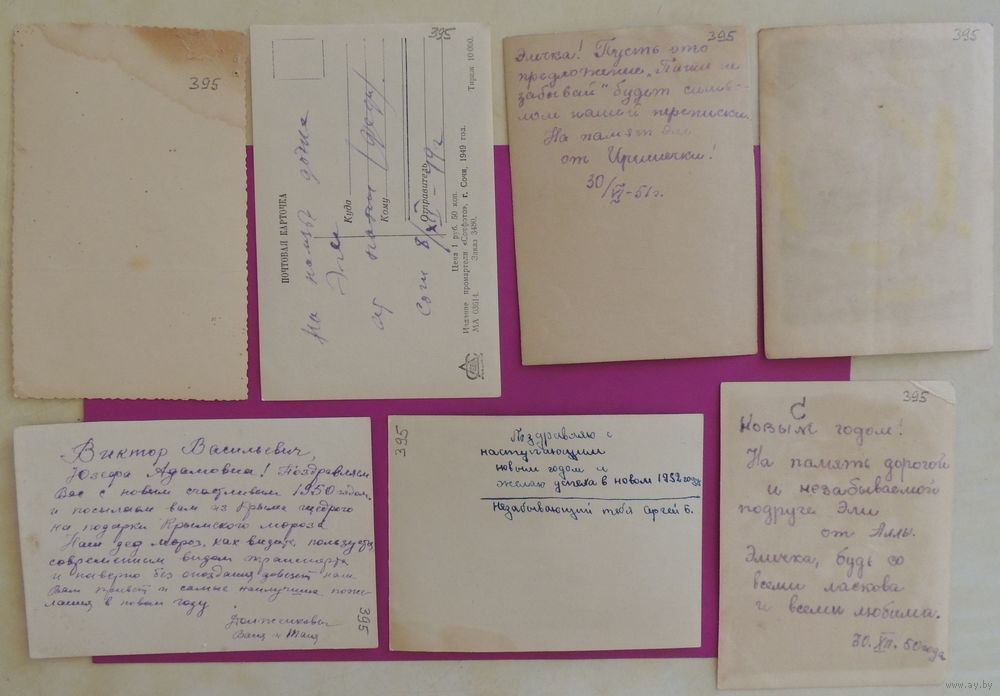 395
395
ПОЧТОВАЯ КАРТОЧКА
Куда
Кому
Отправитель
На память дочке
Элле
от папы
Сочи 8/XII-49 г
Цена 1 руб. 50 коп.
Издание промартели «Сочфото», г. Сочи, 1949 год.
МА 03614. Заказ 3480. Тираж 10 000.
395
Эличка! Пусть это
предложение „Пиши не
забывай" будет симво-
лом нашей переписки.
На память Эле
от Иришечки!
30/VI-51 г.
395
Виктор Васильевич,
Юзефа Адамовна! Поздравляем
Вас с новым счастливым 1950 годом
и посылаем вам из Крыма щедрого
на подарки Крымского мороза
Наш дед мороз, как видите, пользуется
современным видом транспорта
и наверно без опоздания довезет наш
Вам привет и самые наилучшие поже-
лания в новом году
Ваня и Таня
395
395
Поздравляю с
наступающим
новым годом и
желаю успеха в новом 1952 году
Незабывающий тебя Сергей Б.
395
С
Новым годом!
На память дорогой
и незабываемой
подруге Эли
от Аллы.
Эличка, будь со
всеми ласкова
и всеми любима.
30.XII.50 года
www.ay.by